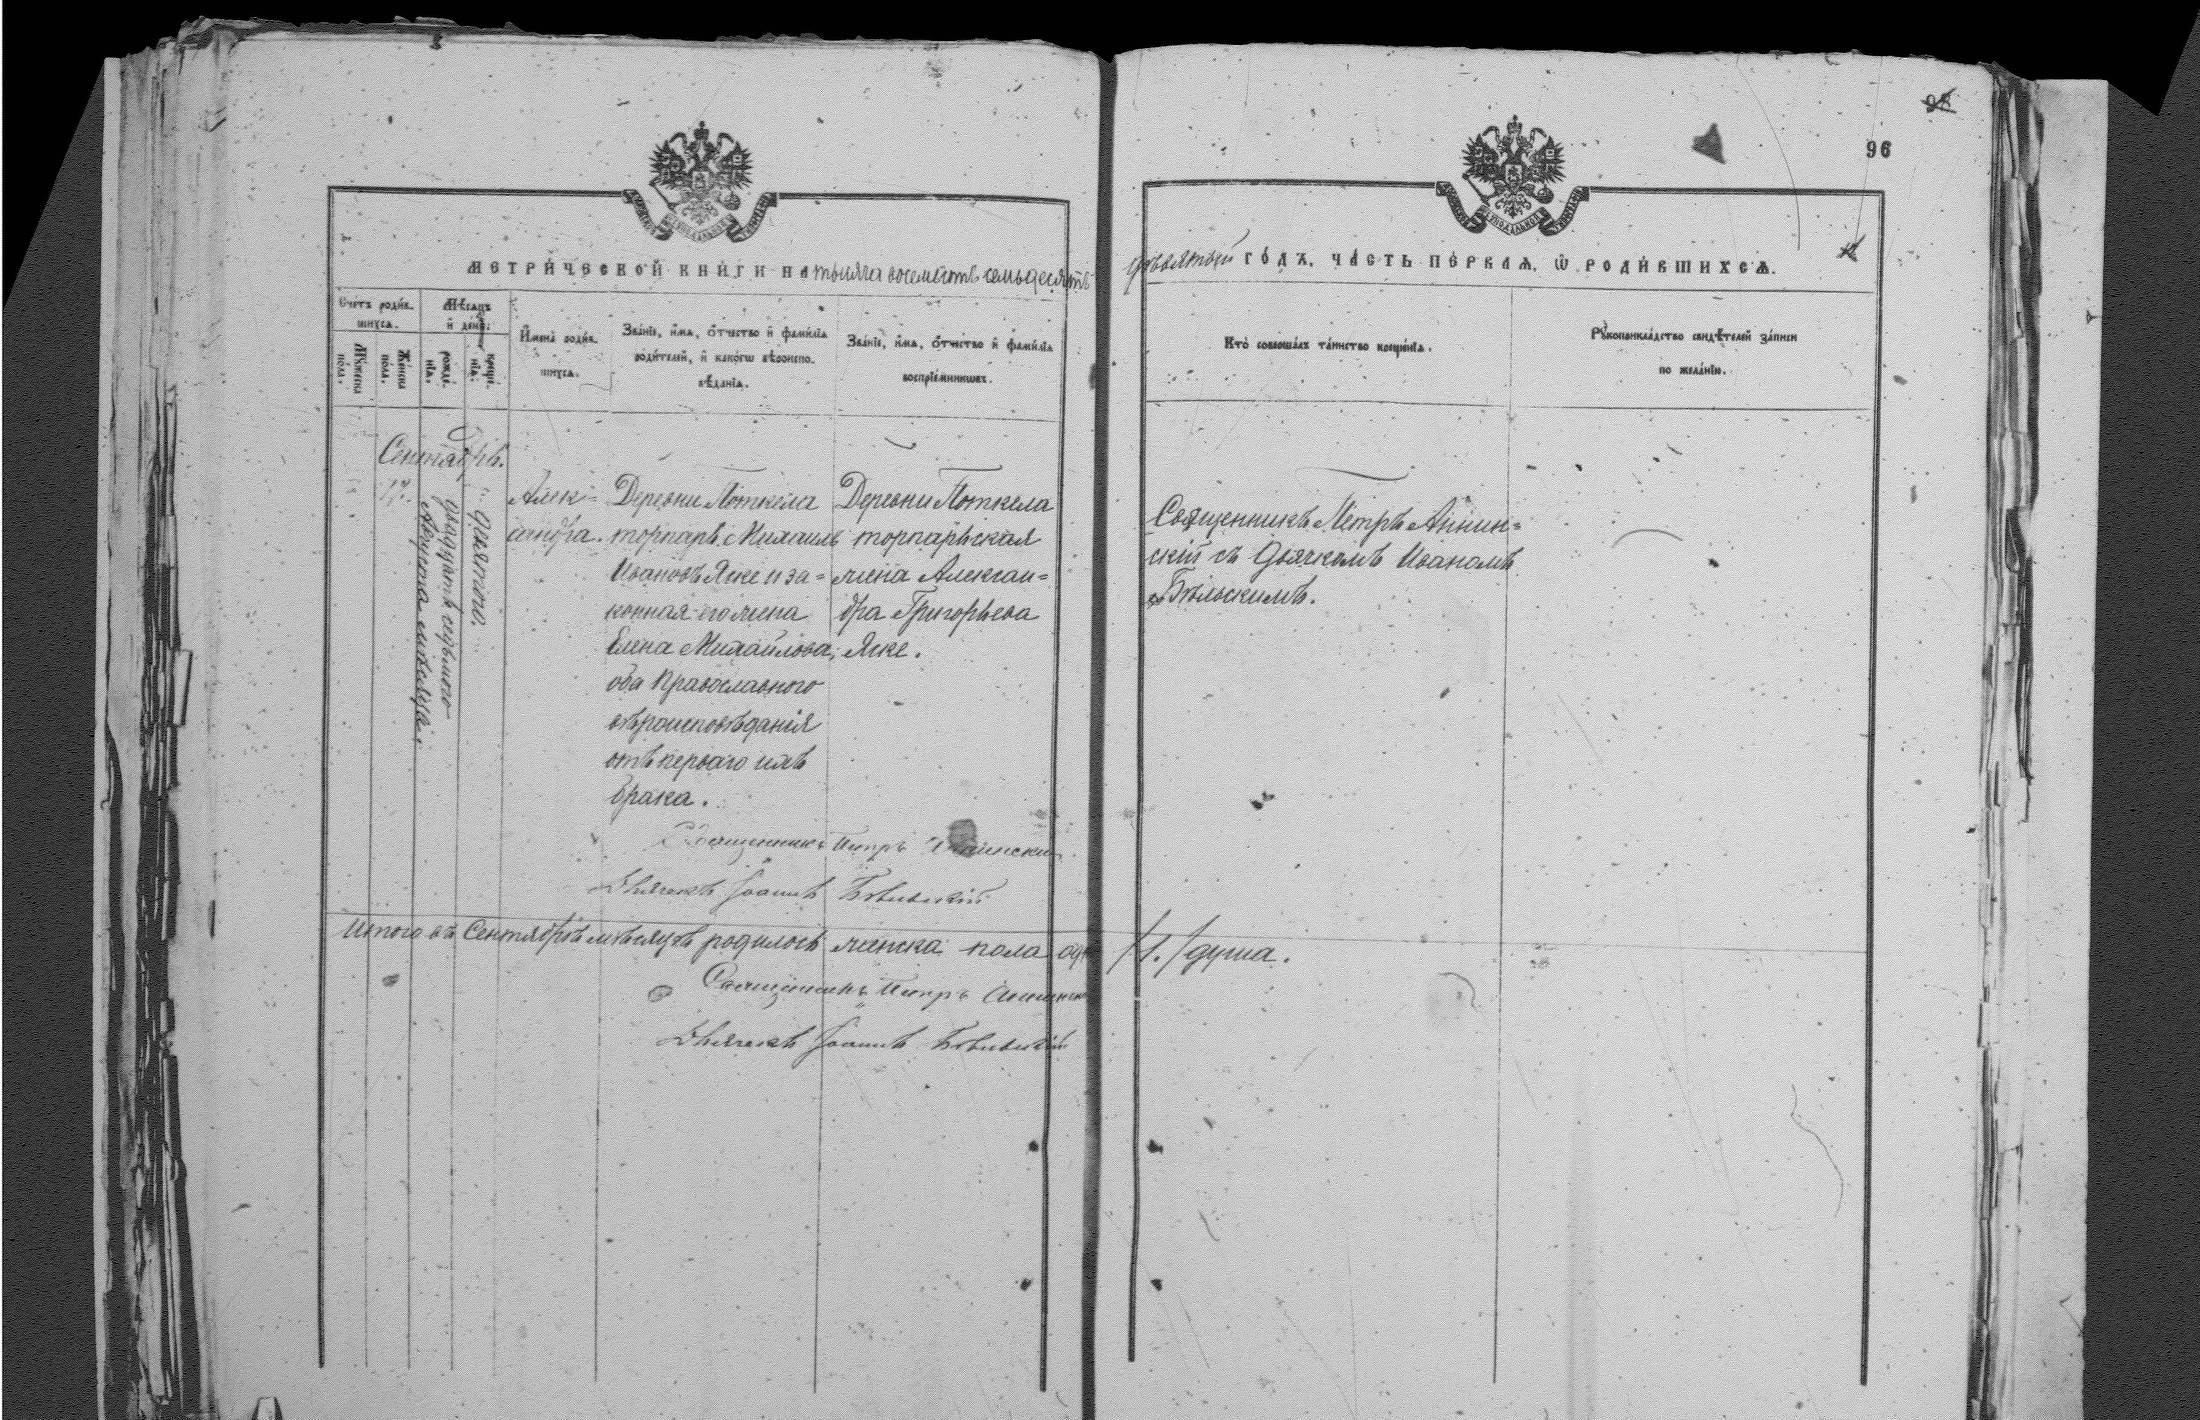 98
96
МЕТРИЧЕСКОЙ КНИГИ НА тысяча восемьсотъ семьдесятъ
девятый ГОДЪ, ЧАСТЬ ПЕРВАЯ, Ѡ РОДИВШИХСЯ.
Счетъ родив-
шихся.
Мѣсяцъ
и день.
Мужеска
пола.
Женска
пола.
рожде-
нія.
креще-
нія.
Имена родив-
шихся.
Званіе, имя, отчество и фамилія
родителей, и какогѡ вѣроиспо-
вѣданія.
Званіе, имя, отчество и фамилія
воспріемниковъ.
Кто совершалъ таинство крещенія.
Рукоприкладство свидѣтелей записи
по желанію.
Сентябрь.
17.
двадцать седьмого
Августа мѣсяца.
девятого.
Алек-
сандра.
Деревни Поткела
торпарь Михаилъ
Ивановъ Яске и за-
конная его жена
Елена Михайлова,
оба Православного
вѣроисповѣданія
отъ перваго ихъ
брака.
Деревни Поткела
торпарьская
жена Алексан-
дра Григорьева
Яске.
Священникъ Петръ Аннин-
скій съ Дьячкомъ Иваномъ
Бѣльскимъ.
Священникъ Петръ Аннинскій
Дьячекъ Іоаннъ Бѣльскій
Итого въ Сентябрѣ мѣсяцѣ родилось женска пола одна /1./ душа.
Священникъ Петръ Аннинскій
Дьячекъ Іоаннъ Бѣльскій